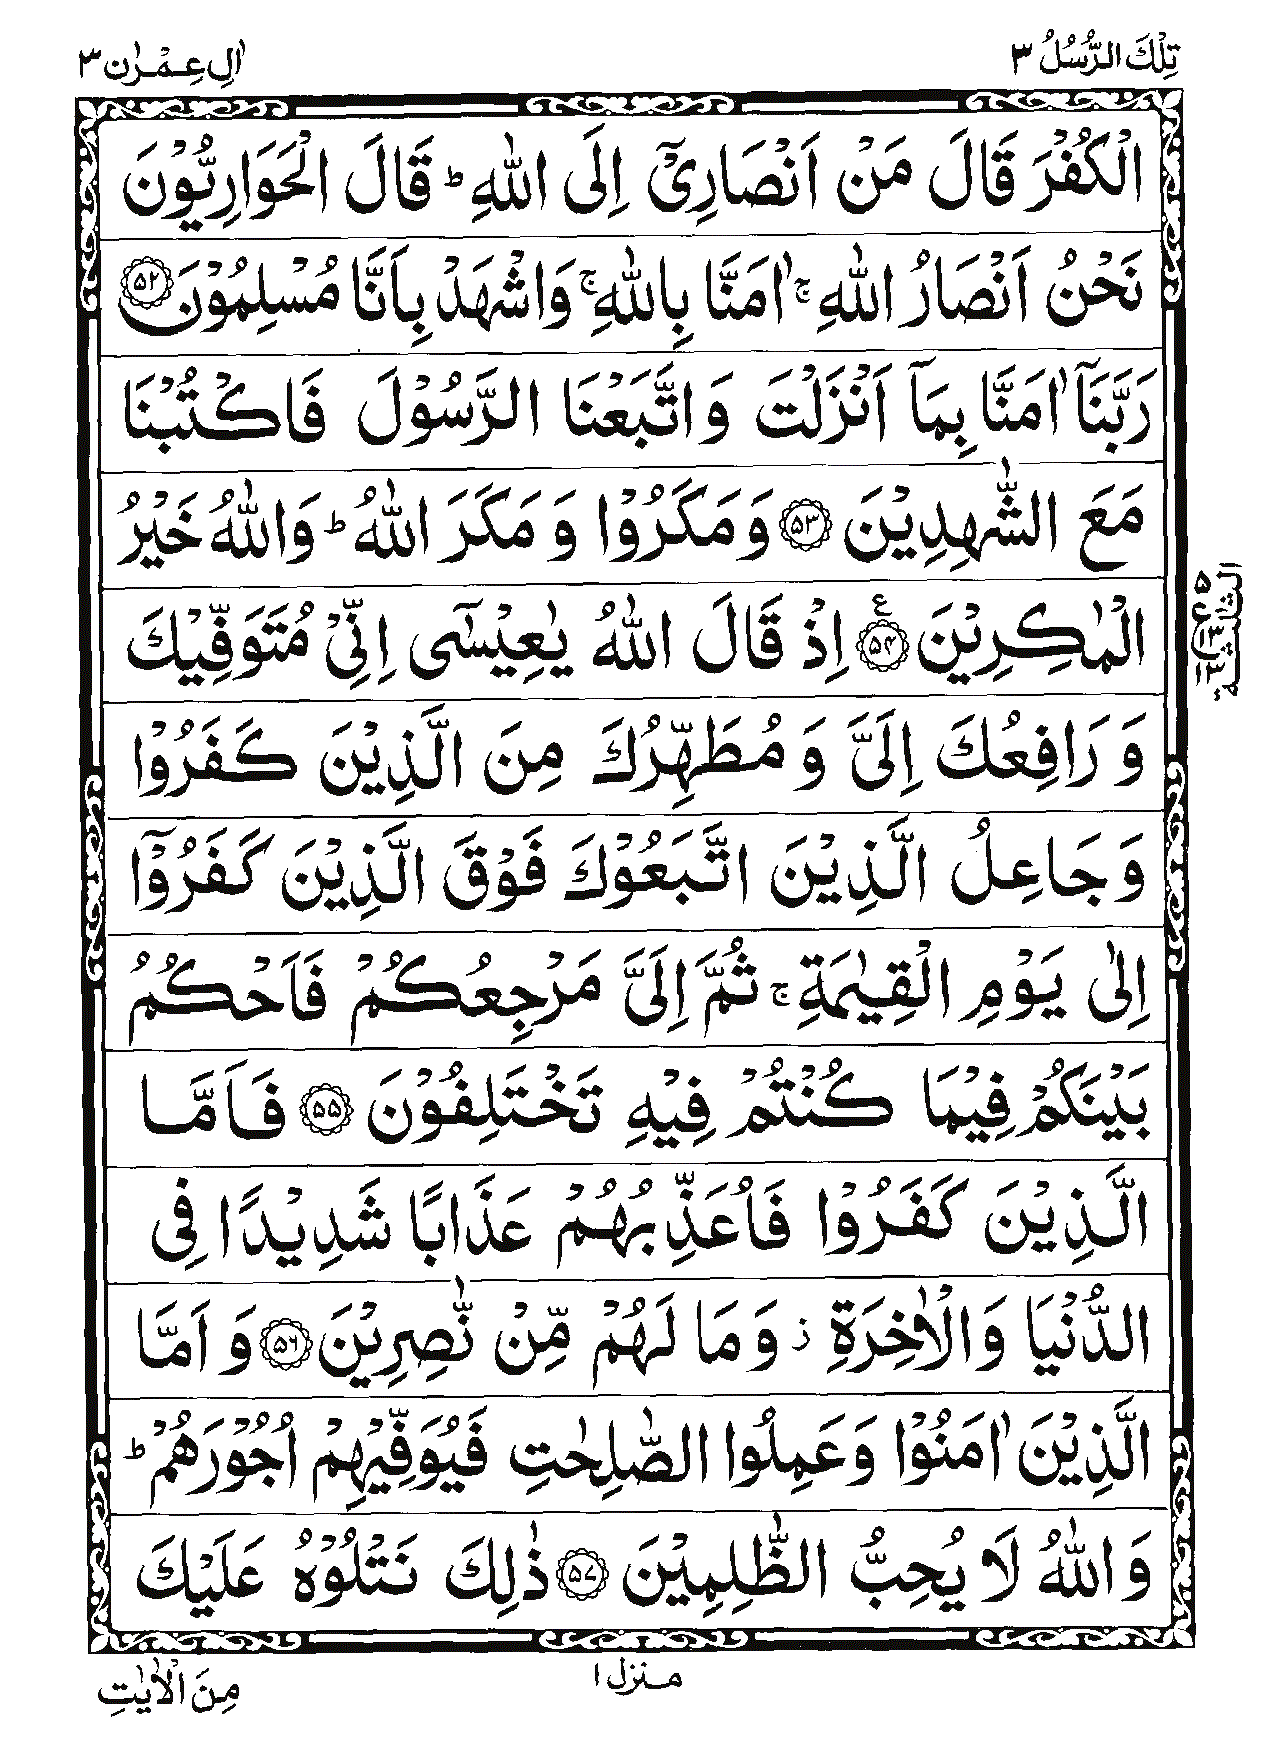 تِلْكَ الرُّسُلُ ٣
اٰلِ عِمْرٰن ٣
الْكُفْرَ قَالَ مَنْ اَنْصَارِیْۤ اِلَی اللّٰهِ ؕ قَالَ الْحَوَارِیُّوْنَ
نَحْنُ اَنْصَارُ اللّٰهِ ۚ اٰمَنَّا بِاللّٰهِ ۚ وَاشْهَدْ بِاَنَّا مُسْلِمُوْنَ ۵۲
رَبَّنَاۤ اٰمَنَّا بِمَاۤ اَنْزَلْتَ وَاتَّبَعْنَا الرَّسُوْلَ فَاكْتُبْنَا
مَعَ الشّٰهِدِیْنَ ۵۳ وَمَكَرُوْا وَمَكَرَ اللّٰهُ ؕ وَاللّٰهُ خَیْرُ
الْمٰكِرِیْنَ ۵۴ ع اِذْ قَالَ اللّٰهُ یٰعِیْسٰۤی اِنِّیْ مُتَوَفِّیْكَ
الثلٰثة ۵ ع ۱۳ ۱۳
وَرَافِعُكَ اِلَیَّ وَمُطَهِّرُكَ مِنَ الَّذِیْنَ كَفَرُوْا
وَجَاعِلُ الَّذِیْنَ اتَّبَعُوْكَ فَوْقَ الَّذِیْنَ كَفَرُوْۤا
اِلٰی یَوْمِ الْقِیٰمَةِ ۚ ثُمَّ اِلَیَّ مَرْجِعُكُمْ فَاَحْكُمُ
بَیْنَكُمْ فِیْمَا كُنْتُمْ فِیْهِ تَخْتَلِفُوْنَ ۵۵ فَاَمَّا
الَّذِیْنَ كَفَرُوْا فَاُعَذِّبُهُمْ عَذَابًا شَدِیْدًا فِی
الدُّنْیَا وَالْاٰخِرَةِ ؗ وَمَا لَهُمْ مِّنْ نّٰصِرِیْنَ ۵۶ وَاَمَّا
الَّذِیْنَ اٰمَنُوْا وَعَمِلُوا الصّٰلِحٰتِ فَیُوَفِّیْهِمْ اُجُوْرَهُمْ ؕ
وَاللّٰهُ لَا یُحِبُّ الظّٰلِمِیْنَ ۵۷ ذٰلِكَ نَتْلُوْهُ عَلَیْكَ
منزل ۱
مِنَ الْاٰیٰتِ